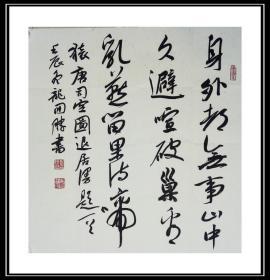 身外都無事山中
久避喧破巢看
乳燕留果待啼
猿唐司空圖退居漫題一首
壬辰冬龍開勝書